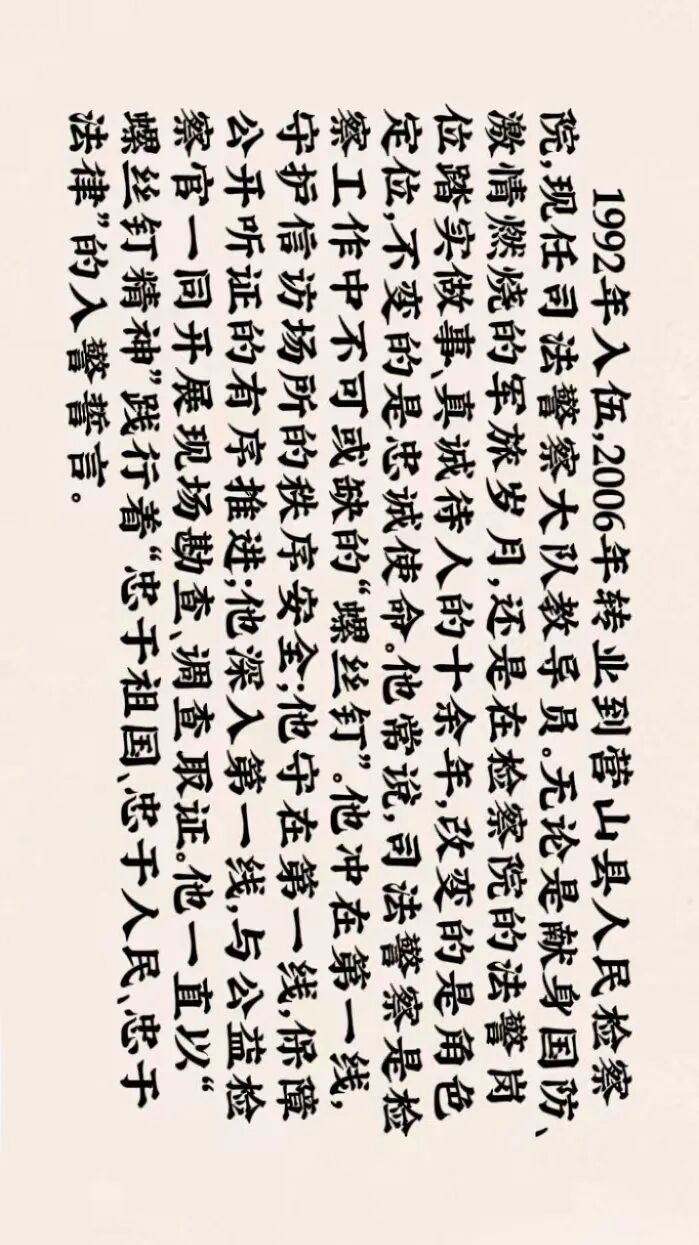 1992年入伍,2006年转业到营山县人民检察
院,现任司法警察大队教导员。无论是献身国防、
激情燃烧的军旅岁月,还是在检察院的法警岗
位踏实做事、真诚待人的十余年,改变的是角色
定位,不变的是忠诚使命。他常说,司法警察是检
察工作中不可或缺的“螺丝钉”。他冲在第一线,
守护信访场所的秩序安全;他守在第一线,保障
公开听证的有序推进;他深入第一线,与公益检
察官一同开展现场勘查、调查取证。他一直以“
螺丝钉精神”践行着“忠于祖国、忠于人民、忠于
法律”的入警誓言。